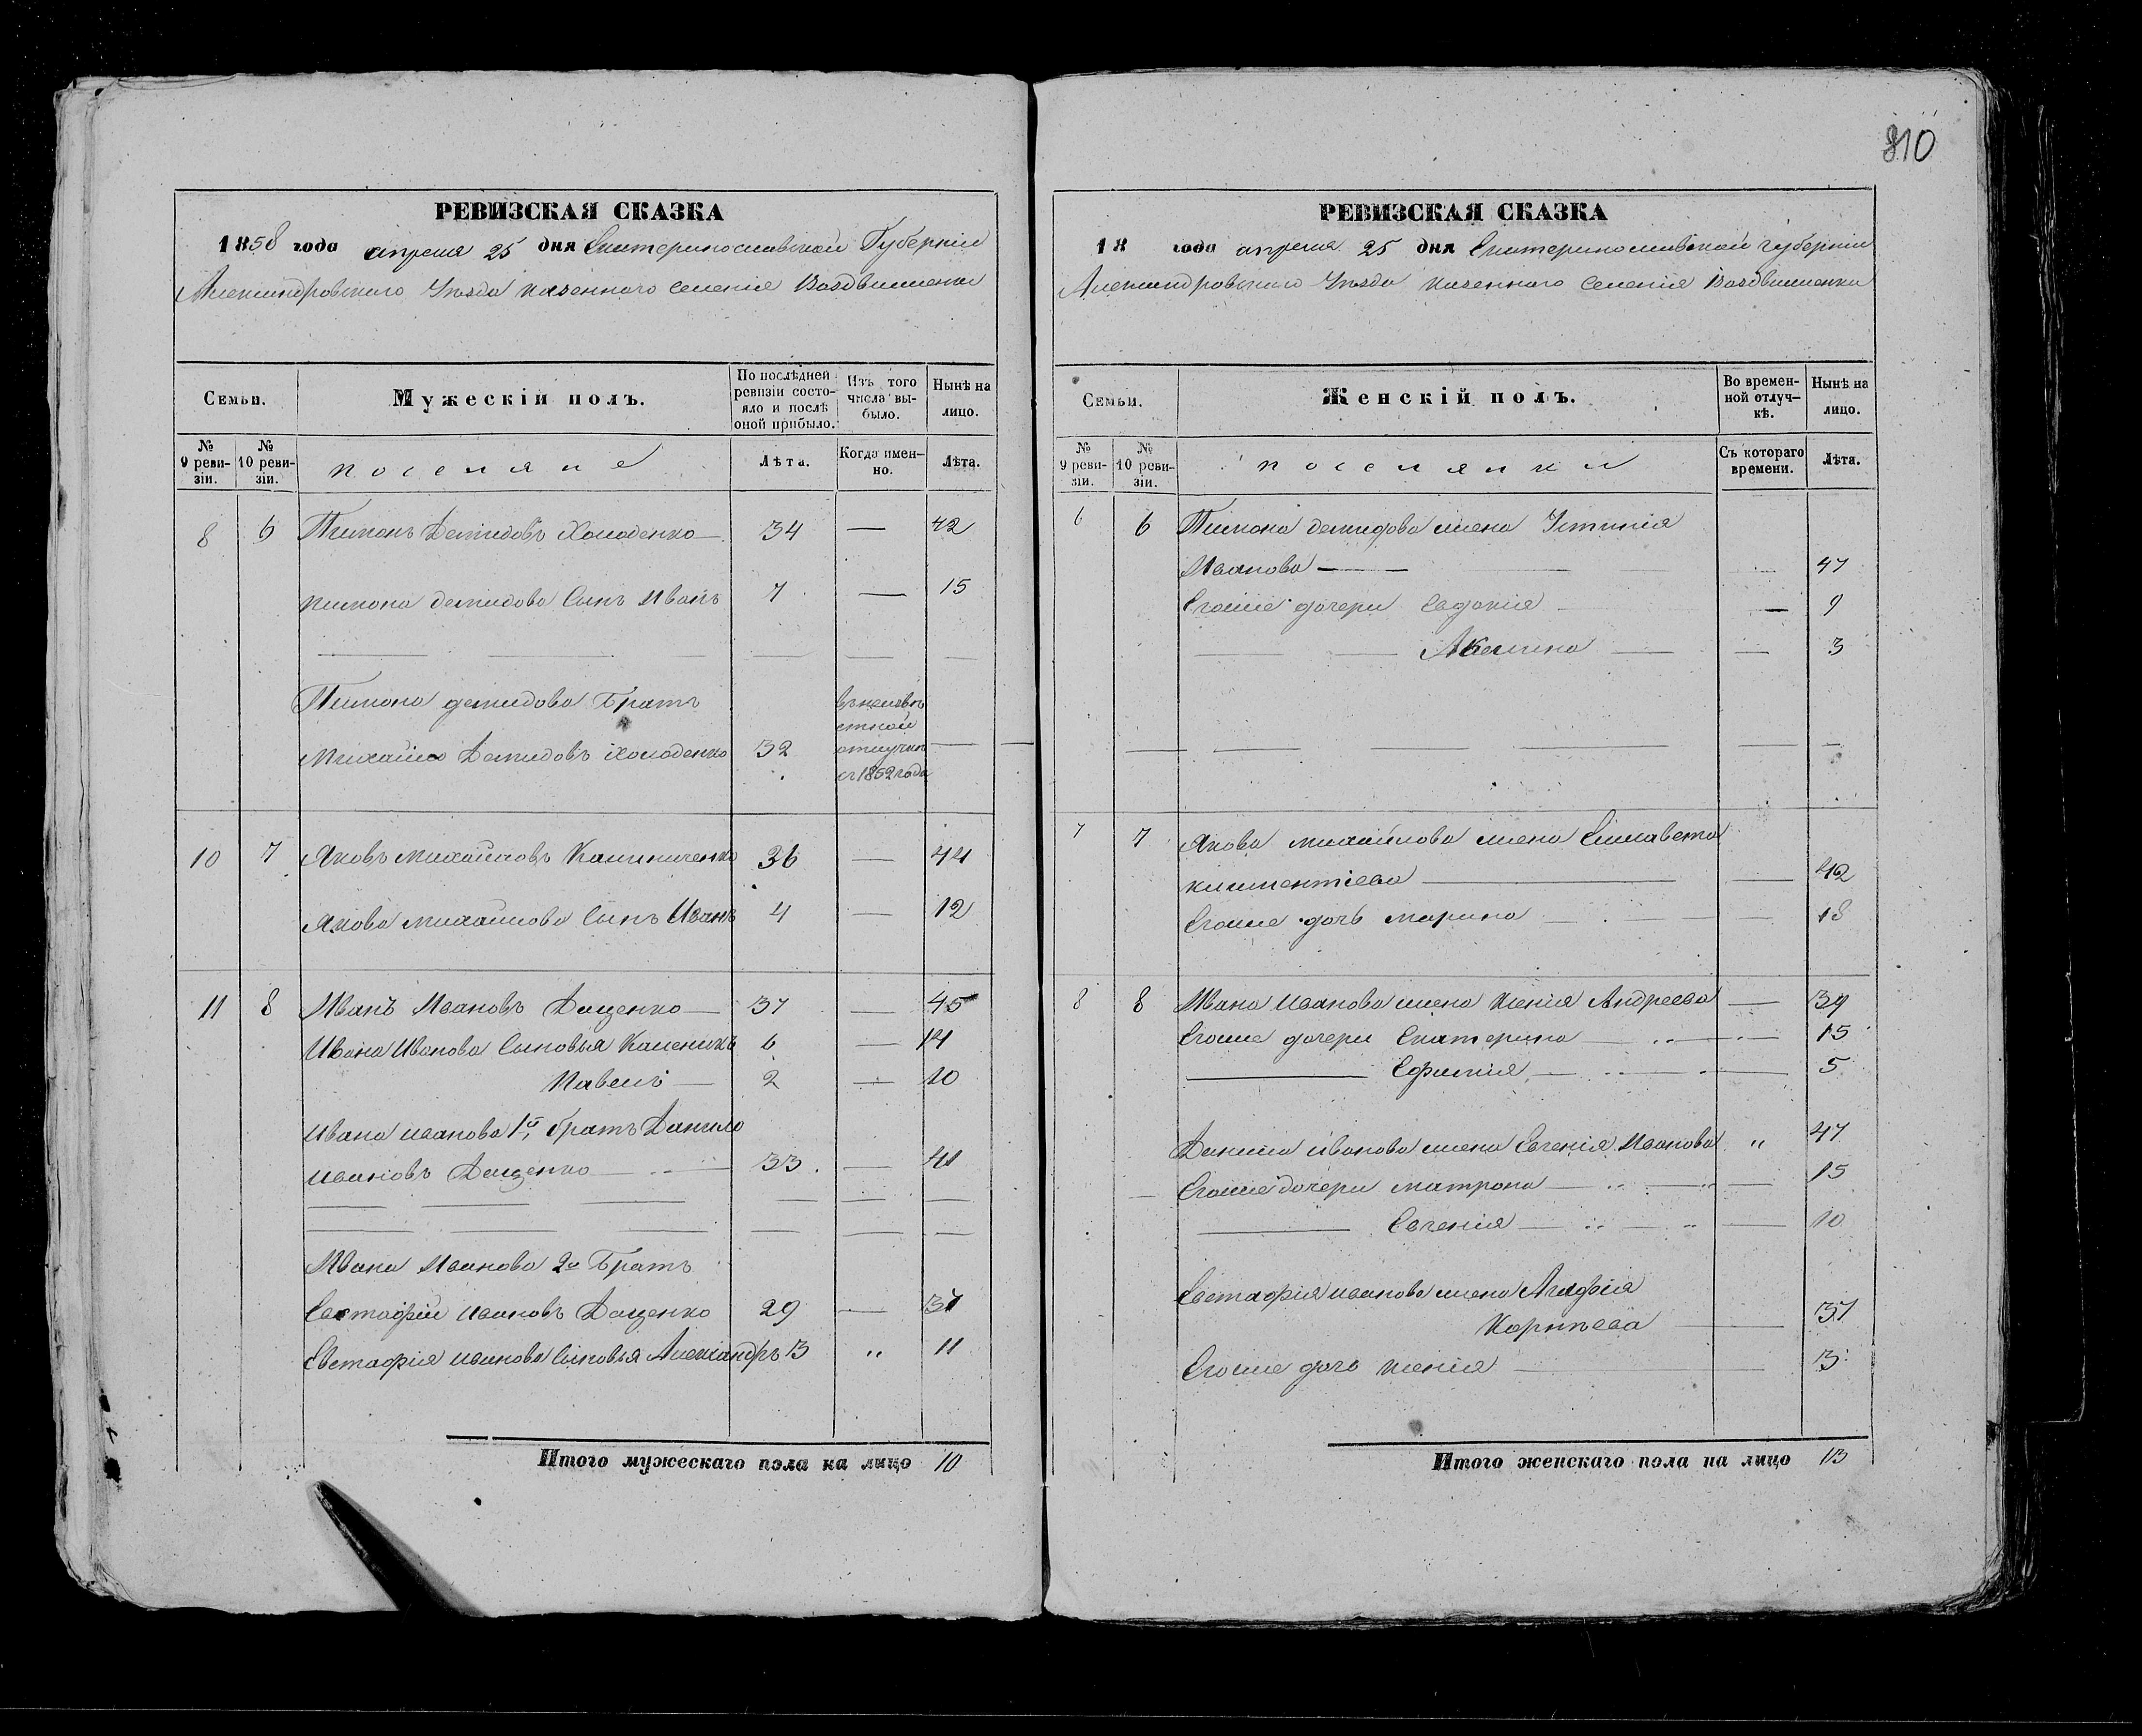 810
РЕВИЗСКАЯ СКАЗКА
1858 года апреля 25 дня Екатеринославской Губерніи
Александровскаго Уезда казенного селенія Воздвиженки
Семьи.
Мужескій полъ.
По послѣдней ревизіи состояло и послѣ оной прибыло.
Изъ того числа выбыло.
Нынѣ на лицо.
№ 9 ревизіи.
№ 10 ревизіи.
поселяне
Лѣта.
Когда именно.
Лѣта.
8 6 Пимонъ Демидовъ Холоденко 34 — 42
Пимона демидова Сынъ Иванъ 7 — 15
Пимона демидова Братъ
Михайло Демидовъ Холоденко 32 въ неизвѣстной отлучке съ 1852 года —
10 7 Яковъ Михайловъ Калиниченко 36 — 44
Якова Михайлова Сынъ Иванъ 4 — 12
11 8 Иванъ Ивановъ Даценко 37 — 45
Ивана Иванова Сыновья Каленикъ 6 — 14
Павелъ 2 — 10
Ивана иванова 1й братъ Данило
ивановъ Даценко 33 — 41
Ивана Иванова 2й Братъ
Евстафій ивановъ Даценко 29 — 37
Евстафія иванова Сыновья Александръ 3 „ 11
Итого мужескаго пола на лицо 10
РЕВИЗСКАЯ СКАЗКА
18 года апреля 25 дня Екатеринославской губерніи
Александровскаго Уезда казенного селенія Воздвиженки
Семьи.
Женскій полъ.
Во временной отлучкѣ.
Нынѣ на лицо.
№ 9 ревизіи.
№ 10 ревизіи.
поселянки
Съ котораго времени.
Лѣта.
6 6 Пимона демидова жена Устинія
Иванова — 47
Егоже дочери Евдокія — 9
Акелина — 3
7 7 Якова михайлова жена Елисавета
климентіева — 42
Егоже дочь марина — 18
8 8 Ивана иванова жена Ксенія Андреева — 39
Егоже дочери Екатерина — 15
Ефимія — 5
Данила иванова жена Евгенія Иванова „ 47
Егоже дочери матрона — 15
Евгенія — 10
Евстафія иванова жена Агафія
Корнѣева — 37
Егоже дочь ксенія — 13
Итого женскаго пола на лицо 13